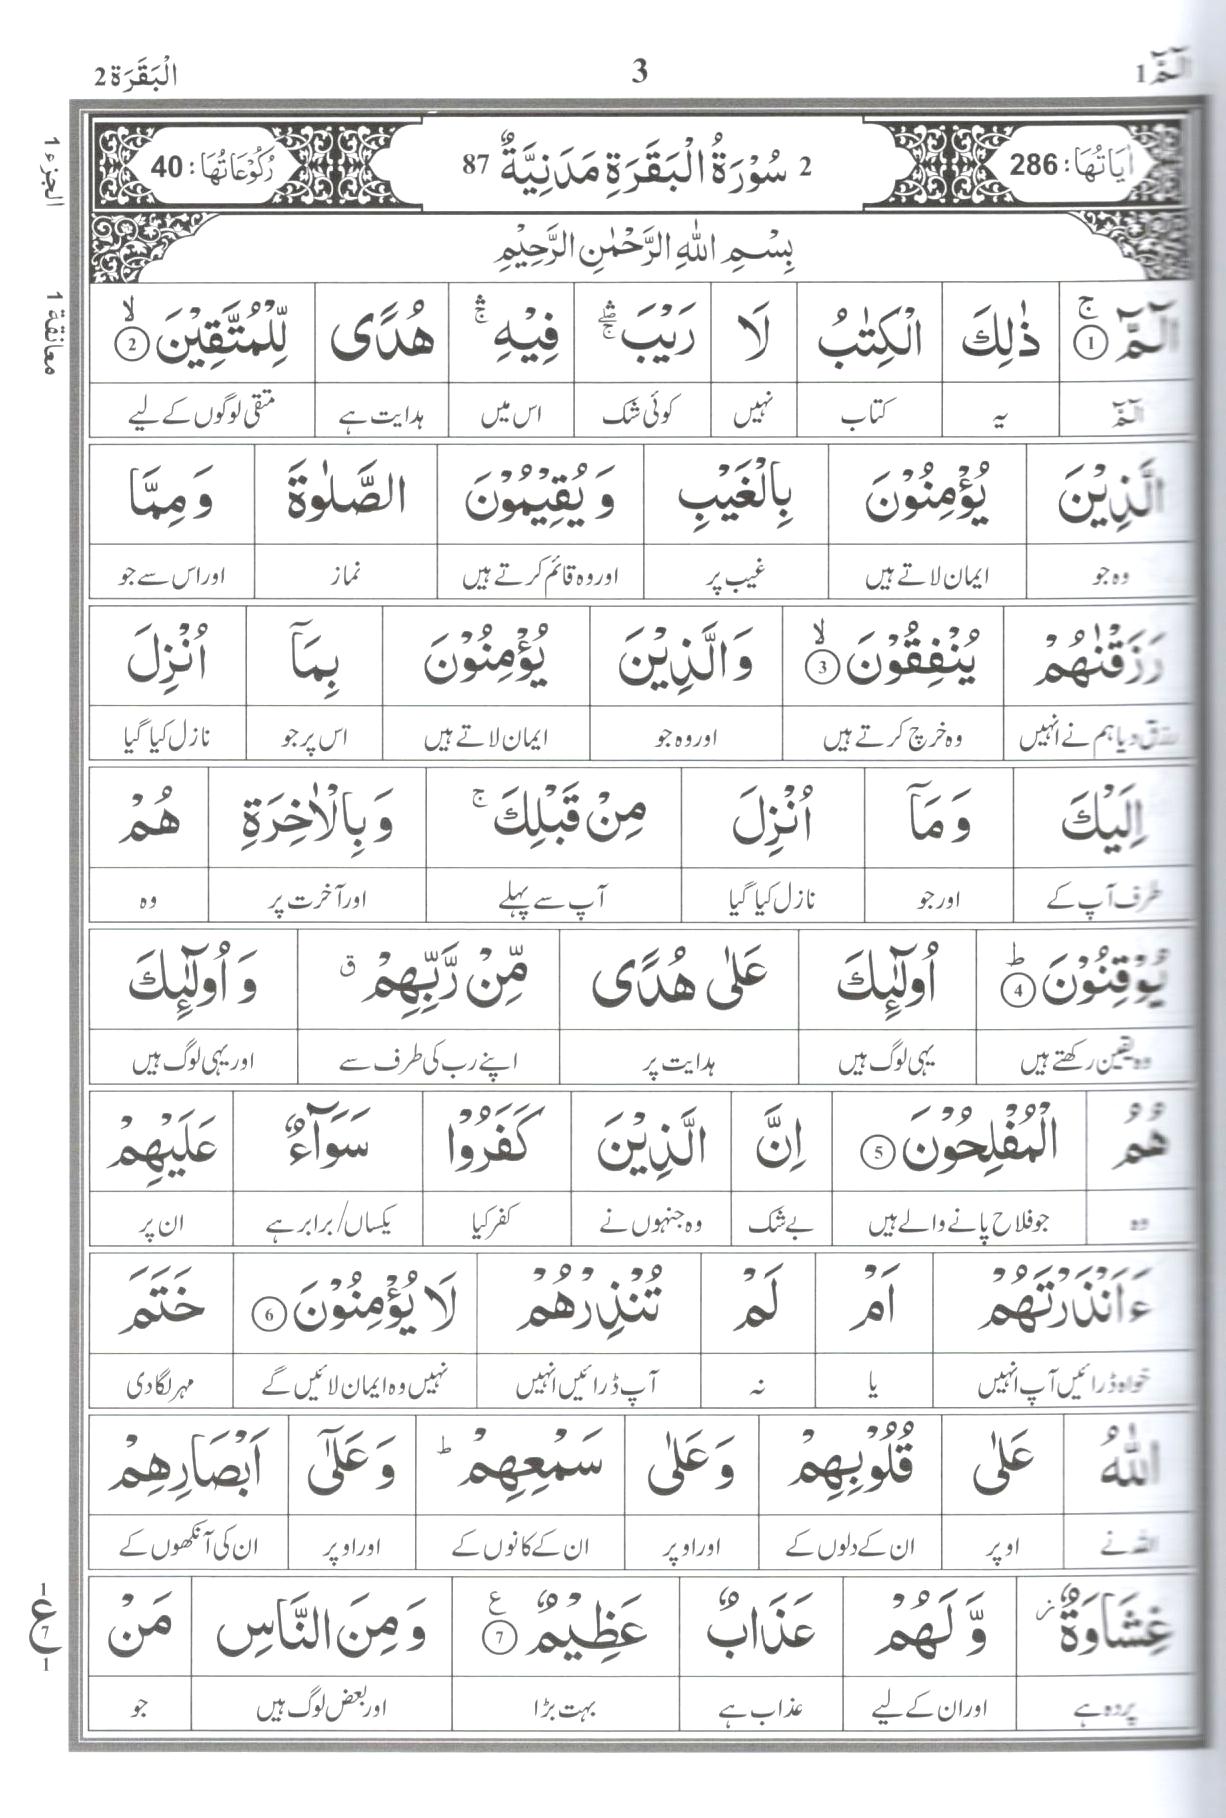 الٓمّٓ 1 3 اَلْبَقَرَة 2
اٰيَاتُهَا: 286 2 سُوْرَةُ الْبَقَرَةِ مَدَنِيَّةٌ 87 رُكُوْعَاتُهَا: 40
الجزء 1
بِسْمِ اللّٰهِ الرَّحْمٰنِ الرَّحِيْمِ
معانقة 1
الٓمّٓ ۚ 1 ذٰلِكَ الْكِتٰبُ لَا رَيْبَ ۛۖۚ فِيْهِ ۛۚ هُدًى لِّلْمُتَّقِيْنَ ۙ 2
الٓمّٓ یہ کتاب نہیں کوئی شک اس میں ہدایت ہے متقی لوگوں کے لیے
الَّذِيْنَ يُؤْمِنُوْنَ بِالْغَيْبِ وَيُقِيْمُوْنَ الصَّلٰوةَ وَمِمَّا
وہ جو ایمان لاتے ہیں غیب پر اور وہ قائم کرتے ہیں نماز اور اس سے جو
رَزَقْنٰهُمْ يُنْفِقُوْنَ ۙ 3 وَالَّذِيْنَ يُؤْمِنُوْنَ بِمَآ اُنْزِلَ
رزق دیا ہم نے انہیں وہ خرچ کرتے ہیں اور وہ جو ایمان لاتے ہیں اس پر جو نازل کیا گیا
اِلَيْكَ وَمَآ اُنْزِلَ مِنْ قَبْلِكَ ۚ وَبِالْاٰخِرَةِ هُمْ
طرف آپ کے اور جو نازل کیا گیا آپ سے پہلے اور آخرت پر وہ
يُوْقِنُوْنَ ؕ 4 اُولٰٓئِكَ عَلٰى هُدًى مِّنْ رَّبِّهِمْ ق وَاُولٰٓئِكَ
وہ یقین رکھتے ہیں یہی لوگ ہیں ہدایت پر اپنے رب کی طرف سے اور یہی لوگ ہیں
هُمُ الْمُفْلِحُوْنَ 5 اِنَّ الَّذِيْنَ كَفَرُوْا سَوَآءٌ عَلَيْهِمْ
وہ جو فلاح پانے والے ہیں بے شک وہ جنہوں نے کفر کیا یکساں/برابر ہے ان پر
ءَاَنْذَرْتَهُمْ اَمْ لَمْ تُنْذِرْهُمْ لَا يُؤْمِنُوْنَ 6 خَتَمَ
خواہ ڈرائیں آپ انہیں یا نہ آپ ڈرائیں انہیں نہیں وہ ایمان لائیں گے مہر لگا دی
اللّٰهُ عَلٰى قُلُوْبِهِمْ وَعَلٰى سَمْعِهِمْ ؕ وَعَلٰٓى اَبْصَارِهِمْ
اللہ نے اوپر ان کے دلوں کے اور اوپر ان کے کانوں کے اور اوپر ان کی آنکھوں کے
غِشَاوَةٌ ز وَّلَهُمْ عَذَابٌ عَظِيْمٌ ع 7 وَمِنَ النَّاسِ مَنْ
پردہ ہے اور ان کے لیے عذاب ہے بہت بڑا اور بعض لوگ ہیں جو
1
ع 7
1